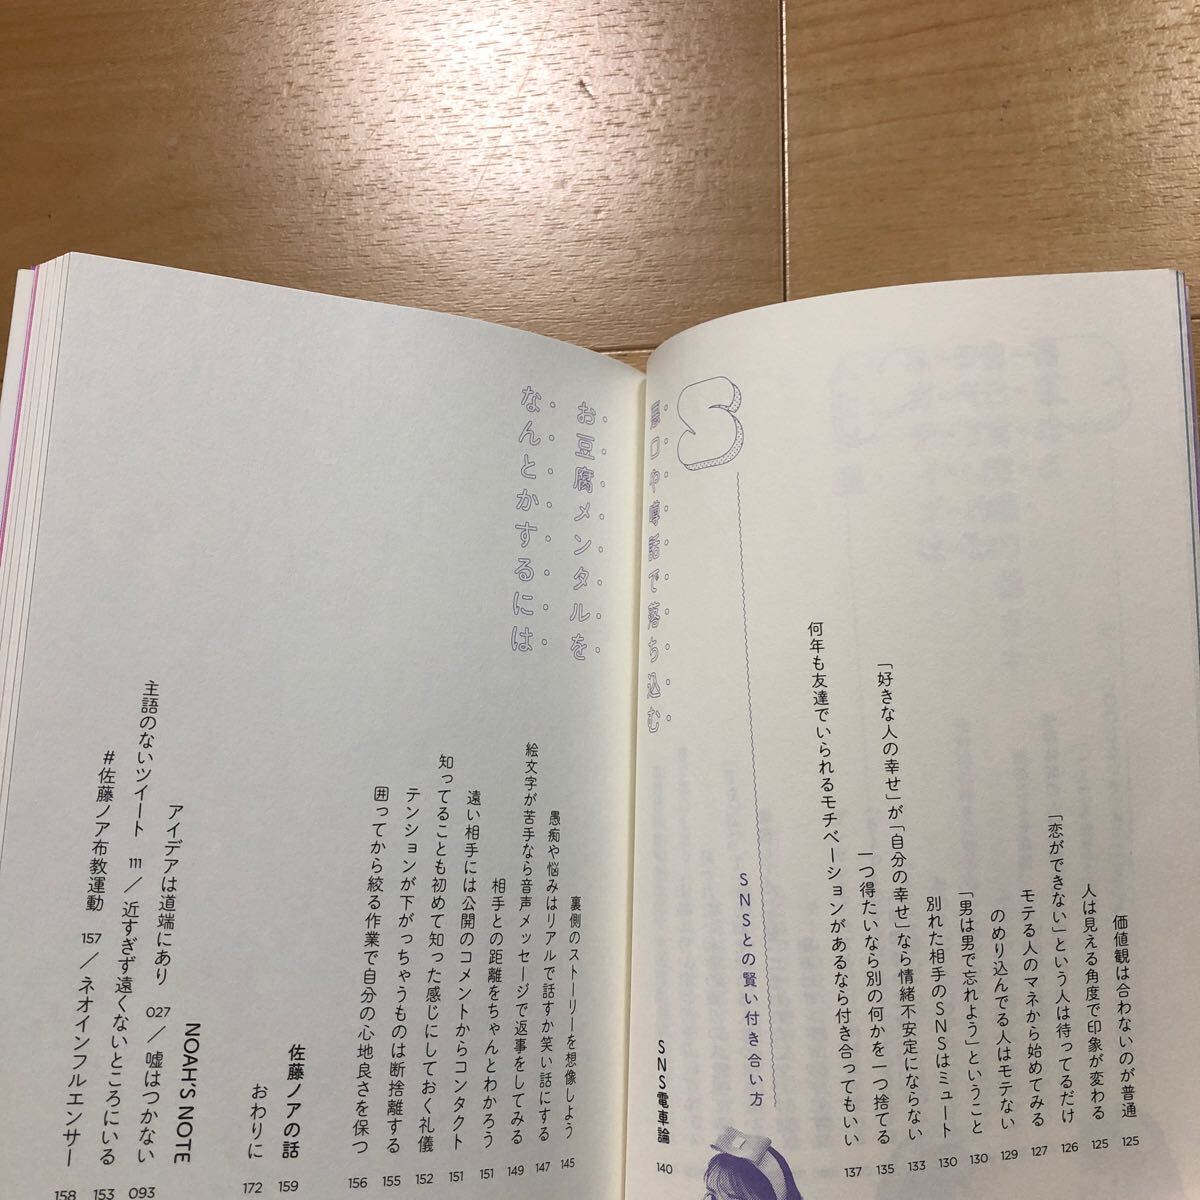 価値観は合わないのが普通 125
人は見える角度で印象が変わる 125
「恋ができない」という人は待ってるだけ 126
モテる人のマネから始めてみる 127
のめり込んでる人はモテない 129
「男は男で忘れよう」ということ 130
別れた相手のSNSはミュート 130
「好きな人の幸せ」が「自分の幸せ」なら情緒不安定にならない 133
一つ得たいなら別の何かを一つ捨てる 135
何年も友達でいられるモチベーションがあるなら付き合ってもいい 137
S
SNSとの賢い付き合い方
SNS電車論 140
悪口や噂話で落ち込む
お豆腐メンタルを
なんとかするには
裏側のストーリーを想像しよう 145
愚痴や悩みはリアルで話すか笑い話にする 147
絵文字が苦手なら音声メッセージで返事をしてみる 149
相手との距離をちゃんとわかろう 151
遠い相手には公開のコメントからコンタクト 151
知ってることも初めて知った感じにしておく礼儀 152
テンションが下がっちゃうものは断捨離する 155
囲ってから絞る作業で自分の心地良さを保つ 156
佐藤ノアの話 159
おわりに 172
NOAH'S NOTE
アイデアは道端にあり 027/嘘はつかない 093
主語のないツイート 111/近すぎず遠くないところにいる 153
#佐藤ノア布教運動 157/ネオインフルエンサー 158